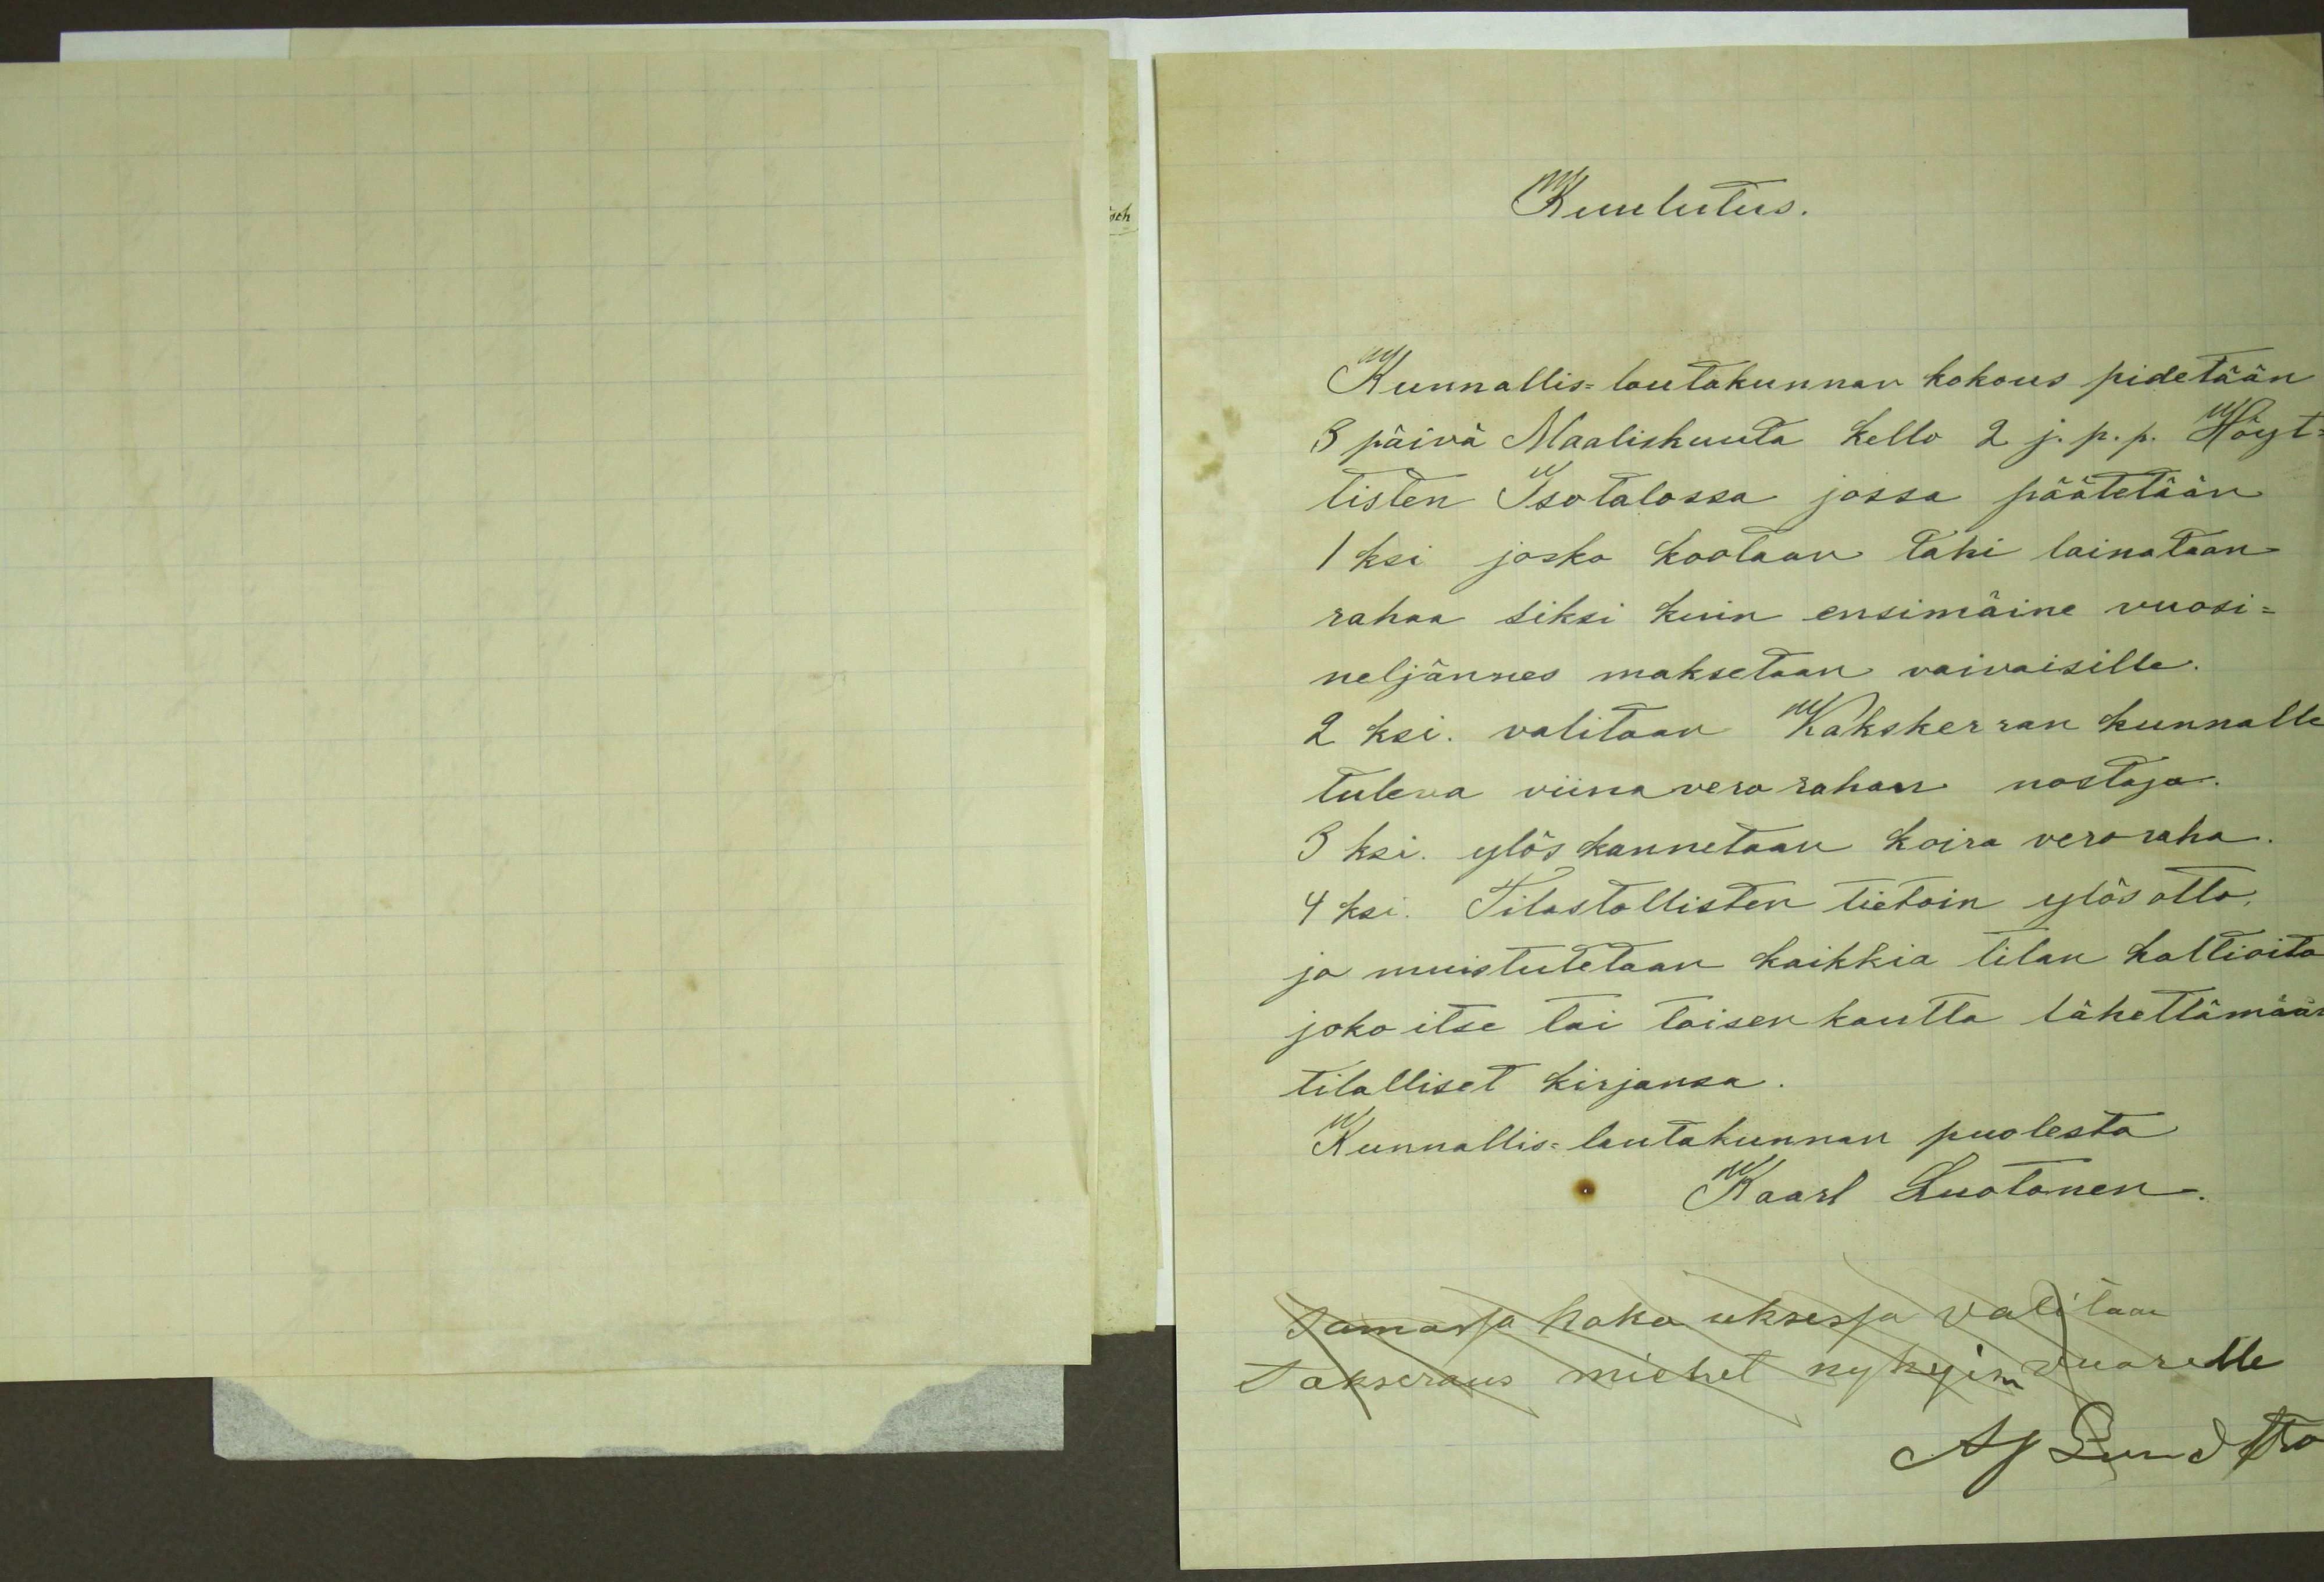 Kuulutus.
Kunnallis=lautakunnan kokous pidetään
3 päivä Maaliskuuta kello 2 j. p. p. Höyt=
tisten Isotalossa jossa päätetään
1 ksi josko kootaan tahi lainataan
rahaa siksi kuin ensimäine vuosi=
neljännes maksetaan vaivaisille.
2 ksi. valitaan Kakskerran kunnalle
tuleva viinavero rahan nostaja.
3 ksi. ylöskannetaan koira veroraha.
4 ksi. Tilastollisten tietoin ylösotto,
ja muistutetaan kaikkia tilan haltioita
joko itse tai toisen kautta lähettämään
tilalliset kirjansa.
Kunnallis=lautakunnan puolesta
Kaarl Luotonen.
Samassa koko uksessa valitaan
Takseraus miehet nykyisn vuorelle